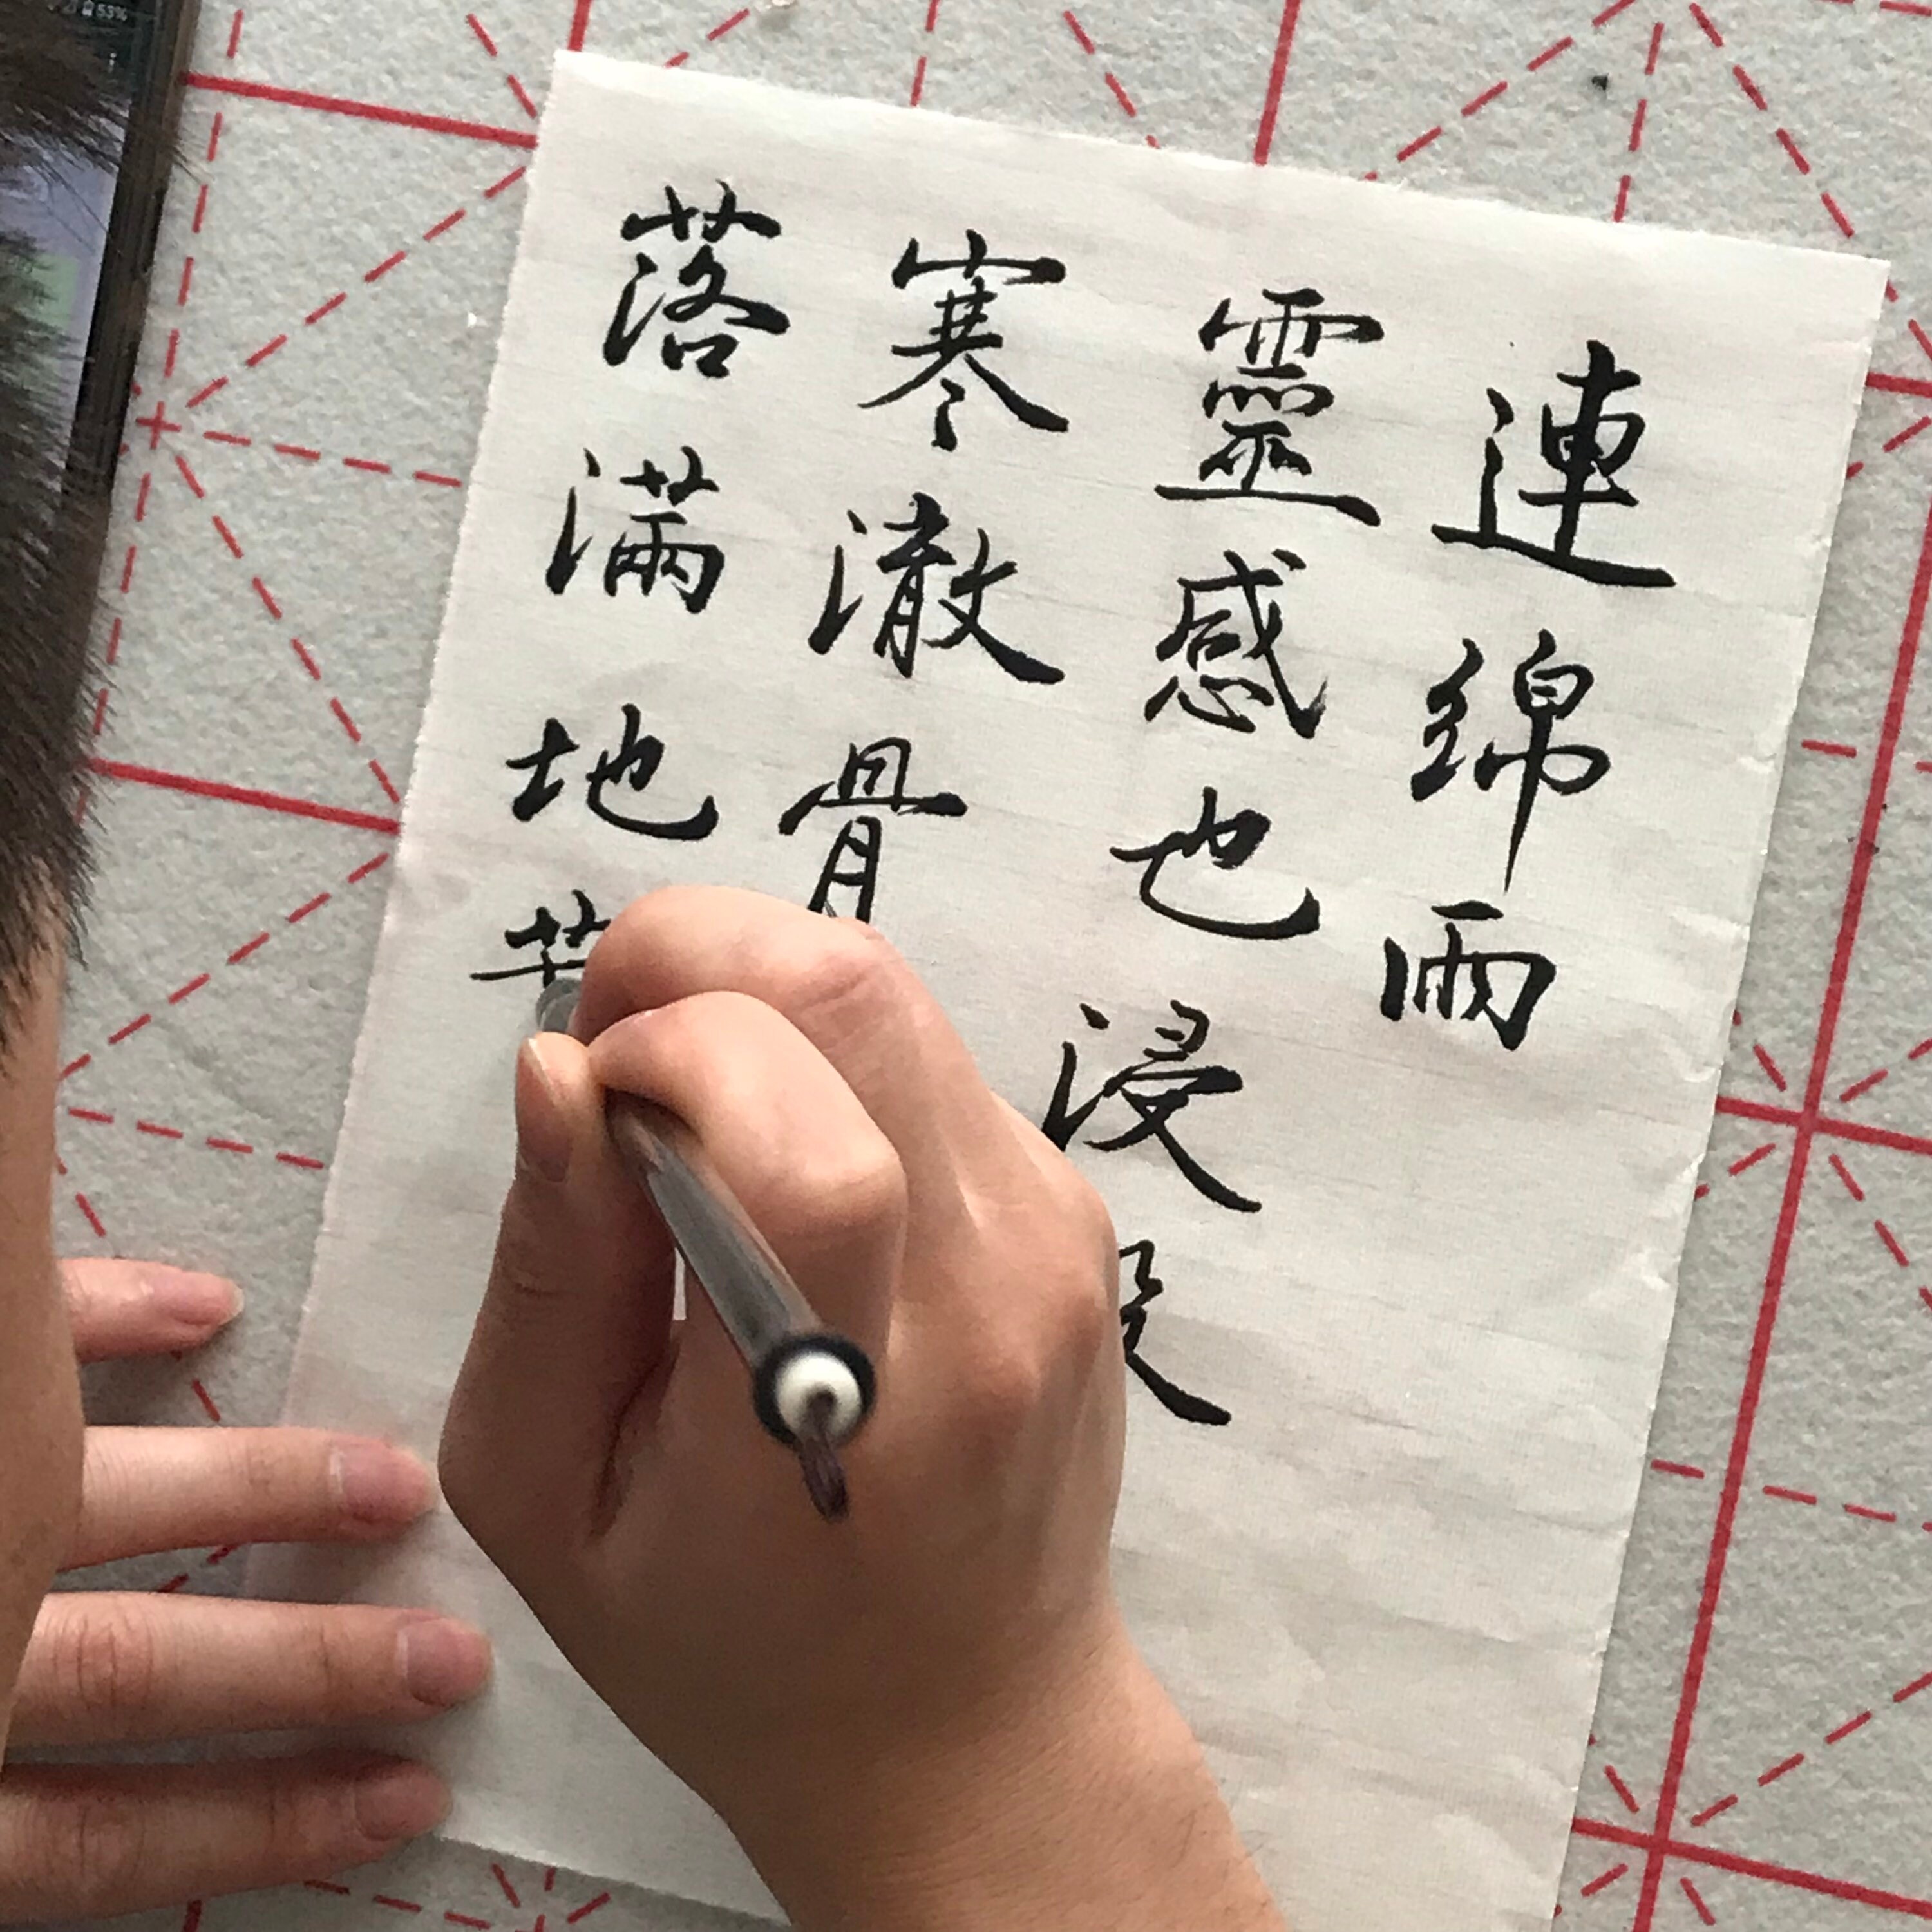 連綿雨
靈感也浸
寒澈骨
落滿地
53%